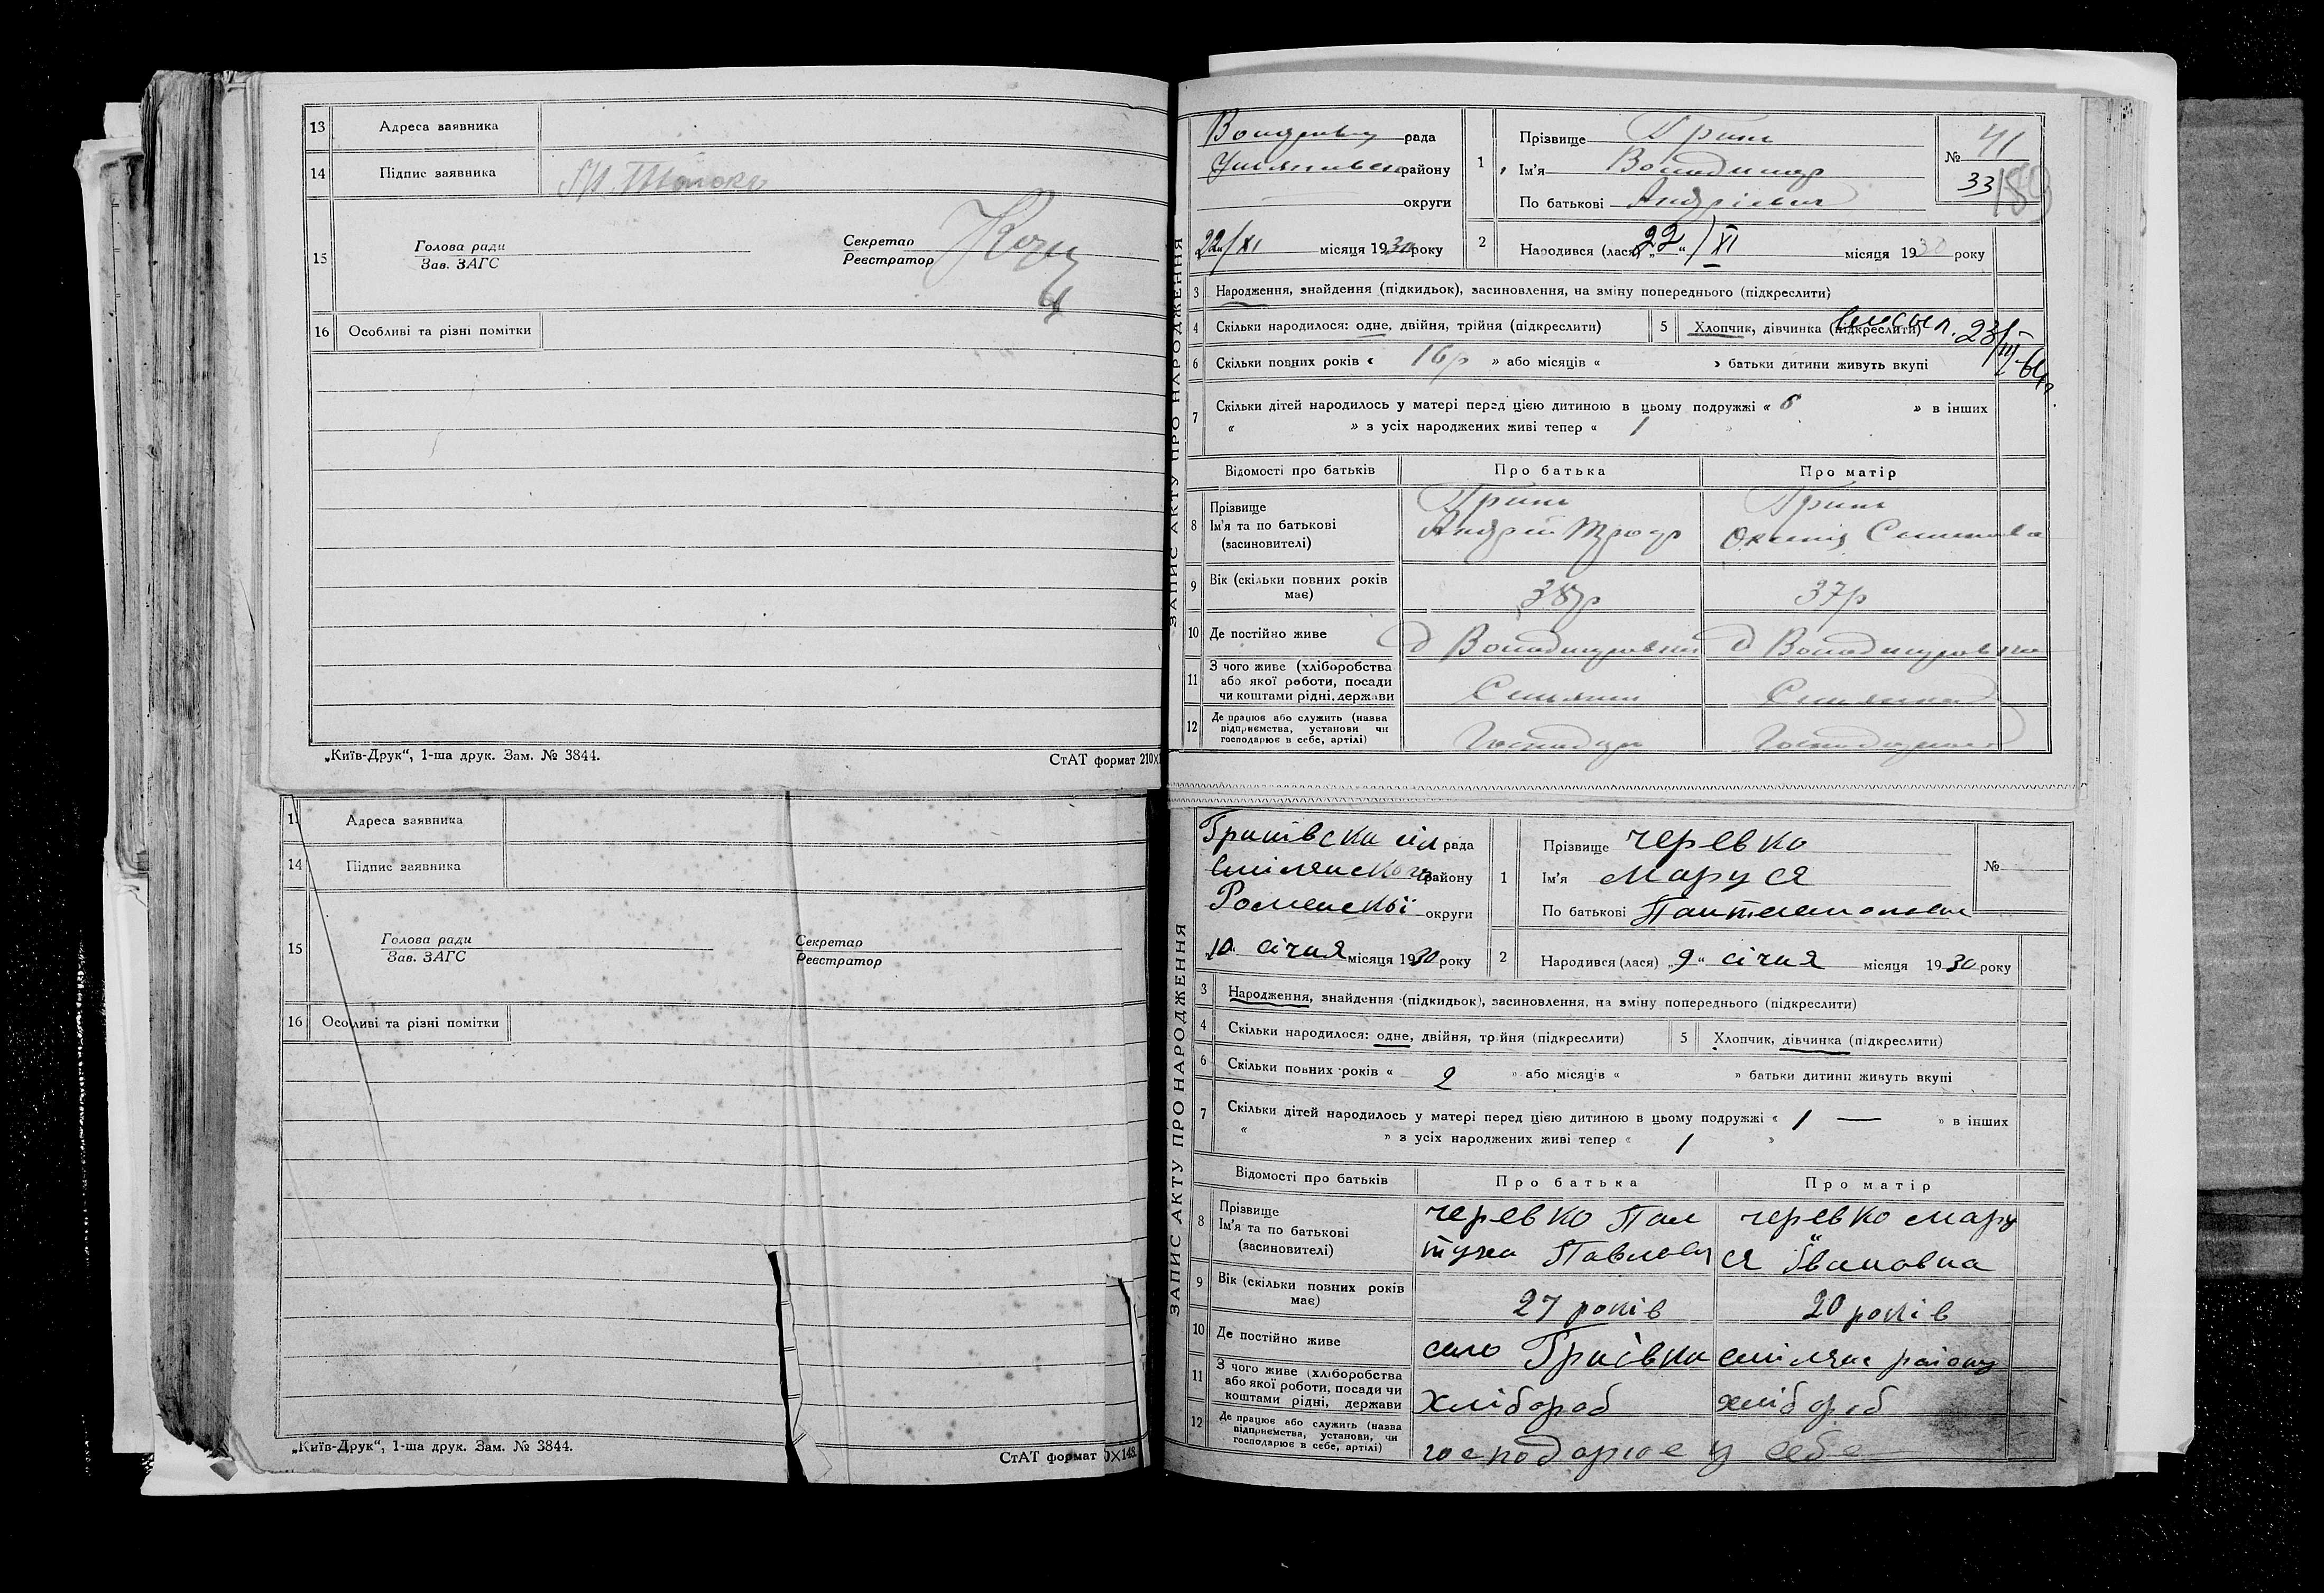 13 Адреса заявника
14 Підпис заявника
15 Голова ради
Зав. ЗАГС
Секретар
Реєстратор
16 Особливі та різні помітки
„Київ-Друк“, 1-ша друк. Зам. № 3844.
СтАТ формат 210×1
Адреса заявника
14 Підпис заявника
15 Голова ради
Зав. ЗАГС
Секретар
Реєстратор
16 Особливі та різні помітки
„Київ-Друк“, 1-ша друк. Зам. № 3844.
СтАТ формат 0×148.
ЗАПИС АКТУ ПРО НАРОДЖЕННЯ
рада
району
округи
22/XI місяця 1930 року
1 Прізвище Гриш
Ім'я Володимир
По батькові Андрієвич
№ 41
33
189
2 Народився (лася) „22“/XI місяця 1930 року
3 Народження, знайдення (підкидьок), засиновлення, на зміну попереднього (підкреслити)
4 Скільки народилося: одне, двійня, трійня (підкреслити)
5 Хлопчик, дівчинка (підкреслити)
23/III
6 Скільки повних років « 16 р » або місяців « » батьки дитини живуть вкупі
7 Скільки дітей народилось у матері перед цією дитиною в цьому подружжі « 6 » в інших
« » з усіх народжених живі тепер « 1 »
Відомості про батьків Про батька Про матір
8 Прізвище
Ім'я та по батькові
(засиновителі)
Гриш
Андрій
Гриш
9 Вік (скільки повних років
має)
38 р
37 р
10 Де постійно живе
11 З чого живе (хліборобства
або якої роботи, посади
чи коштами рідні, держави
Селянин
Селянка
12 Де працює або служить (назва
підприємства, установи чи
господарює в себе, артілі)
ЗАПИС АКТУ ПРО НАРОДЖЕННЯ
рада
району
Роменськьї округи
10 січня місяця 1930 року
1 Прізвище Черевко
Ім'я Маруся
По батькові
№
2 Народився (лася) „9“ січня місяця 1930 року
3 Народження, знайдення (підкидьок), засиновлення, на зміну попереднього (підкреслити)
4 Скільки народилося: одне, двійня, трійня (підкреслити)
5 Хлопчик, дівчинка (підкреслити)
6 Скільки повних років « 2 » або місяців « » батьки дитини живуть вкупі
7 Скільки дітей народилось у матері перед цією дитиною в цьому подружжі « 1 — » в інших
« » з усіх народжених живі тепер « 1 »
Відомості про батьків Про батька Про матір
8 Прізвище
Ім'я та по батькові
(засиновителі)
Черевко
Черевко Мару
ся Івановна
9 Вік (скільки повних років
має)
27 років
20 років
10 Де постійно живе
село району
11 З чого живе (хліборобства
або якої роботи, посади чи
коштами рідні, держави
хлібороб
хлібороб
12 Де працює або служить (назва
підприємства, установи, чи
господарює в себе, артілі)
господорює у себе